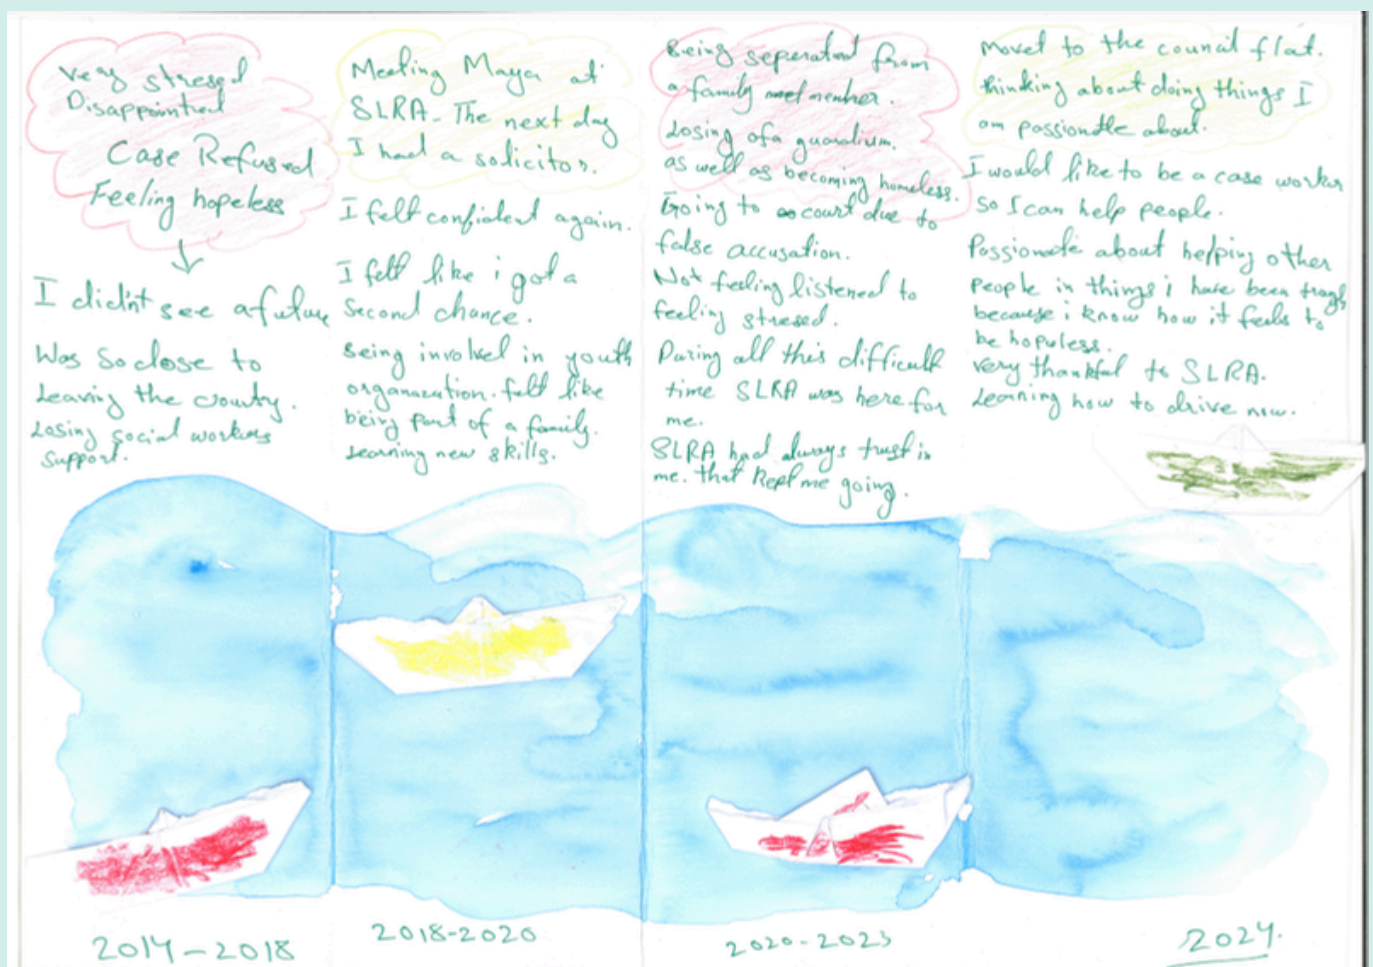 Very stressed
Disappointed
Case Refused
Feeling hopeless
I didn't see a future
Was so close to
Leaving the country.
Losing social workers
support.
2014-2018
Meeting Maya at
SLRA- The next day
I had a solicitor.
I felt confident again.
I felt like i got a
Second chance.
Being involved in youth
organization. felt like
being part of a family.
Learning new skills.
2018-2020
Being seperated from
a family member.
Losing of a guardium.
as well as becoming homeless.
Going to court due to
false accusation.
Not feeling listened to
feeling stresed.
During all this difficult
time SLRA was here for
me.
SLRA had always trust in
me. that kept me going.
2020-2023
Movet to the council flat.
thinking about doing things I
am passionate about.
I would like to be a case worker
so I can help people.
Passionate about helping other
people in things i have been
because i know how it feels to
be hopeless.
very thankful to SLRA.
Learning how to drive now.
2024.